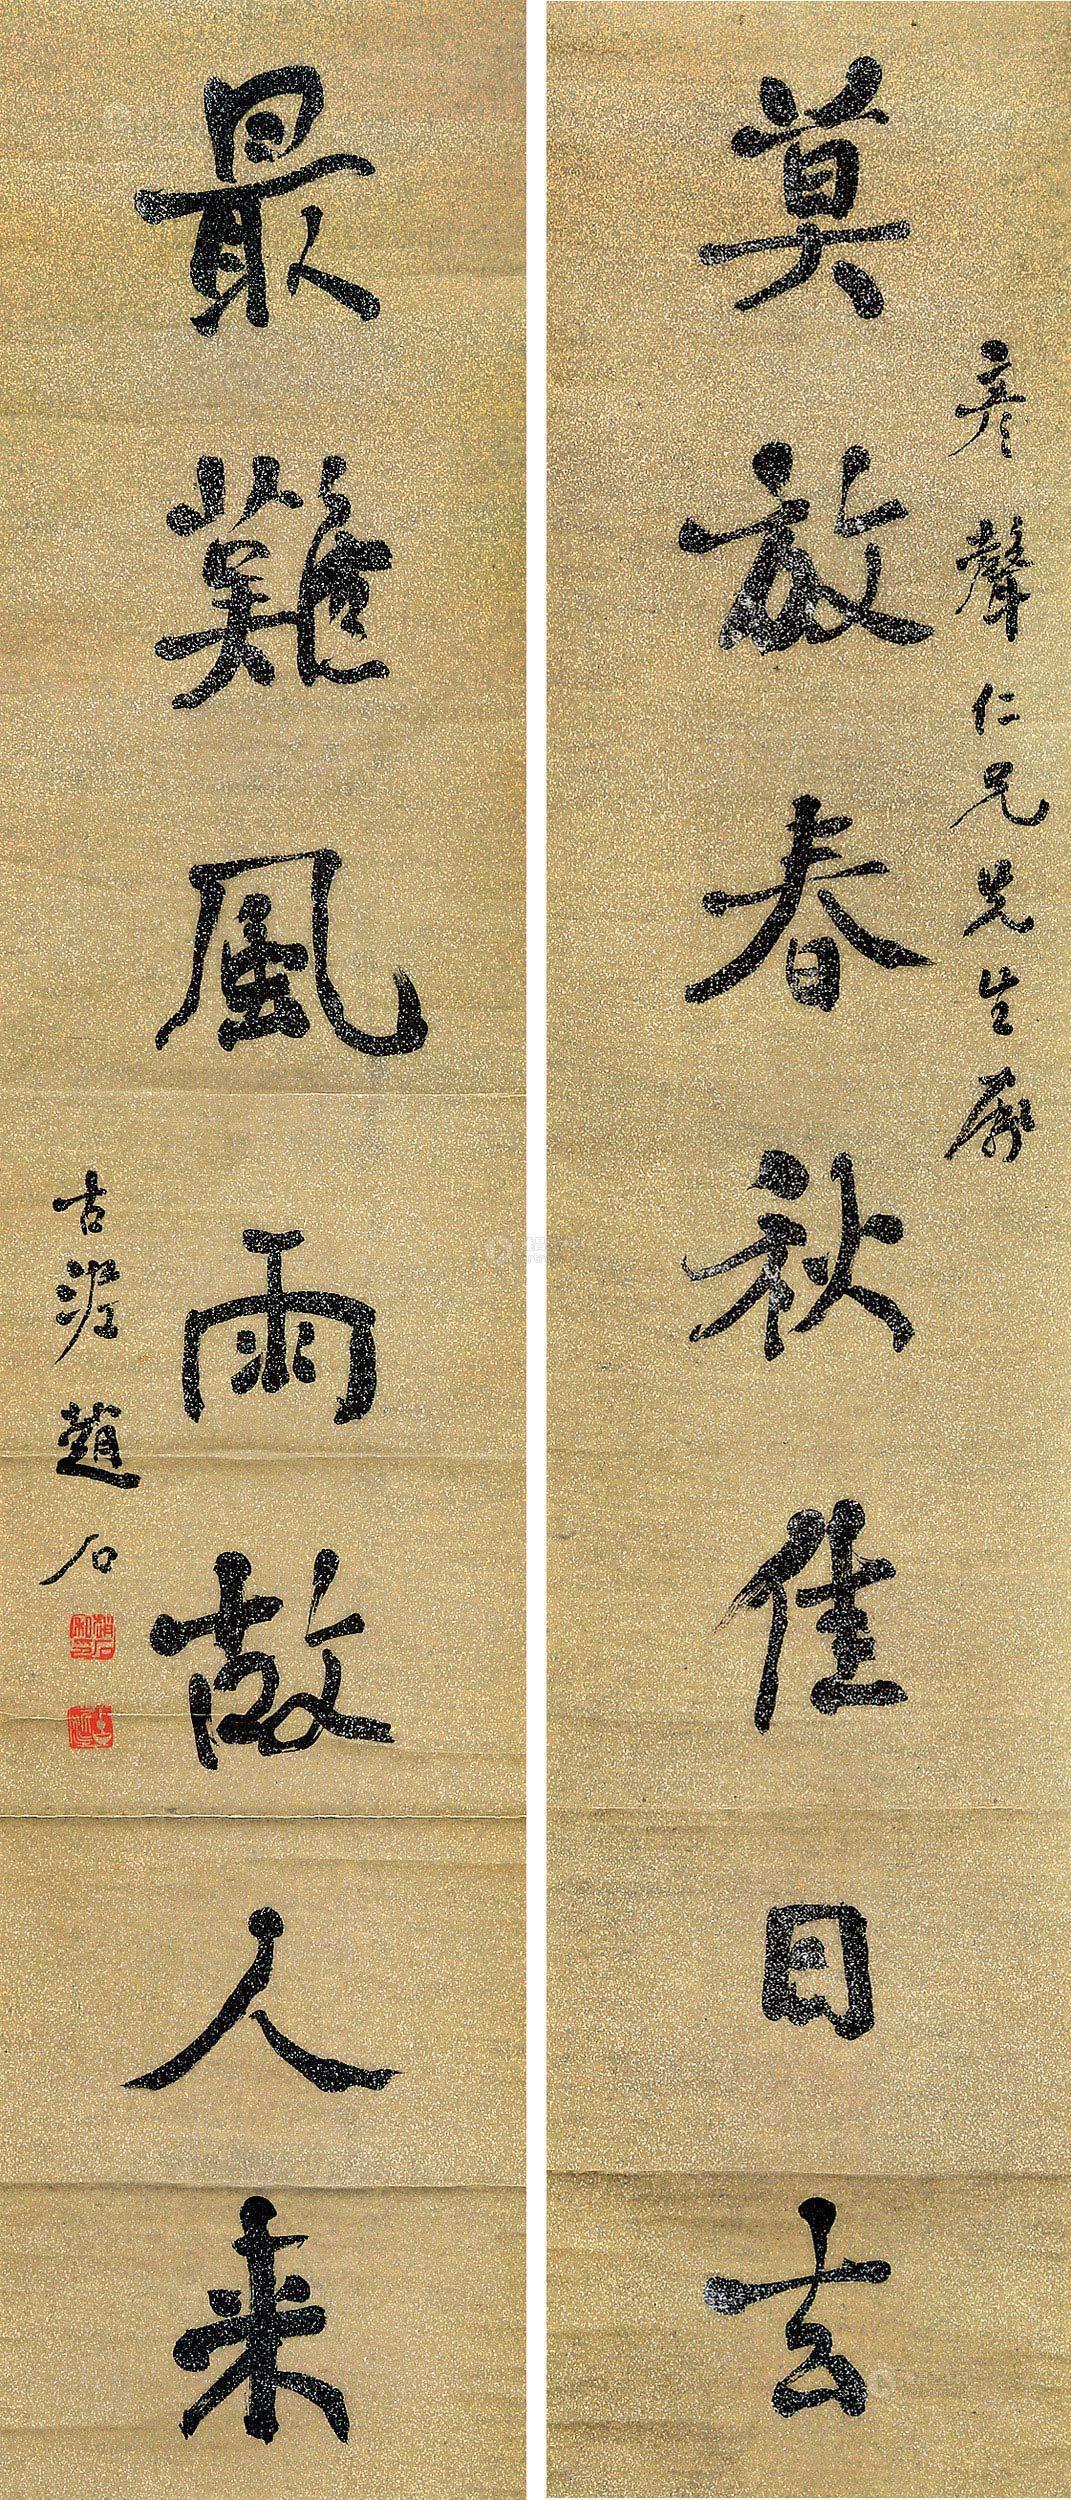 彥聲仁兄先生屬
莫放春秋佳日去
最難風雨故人来
古泥趙石